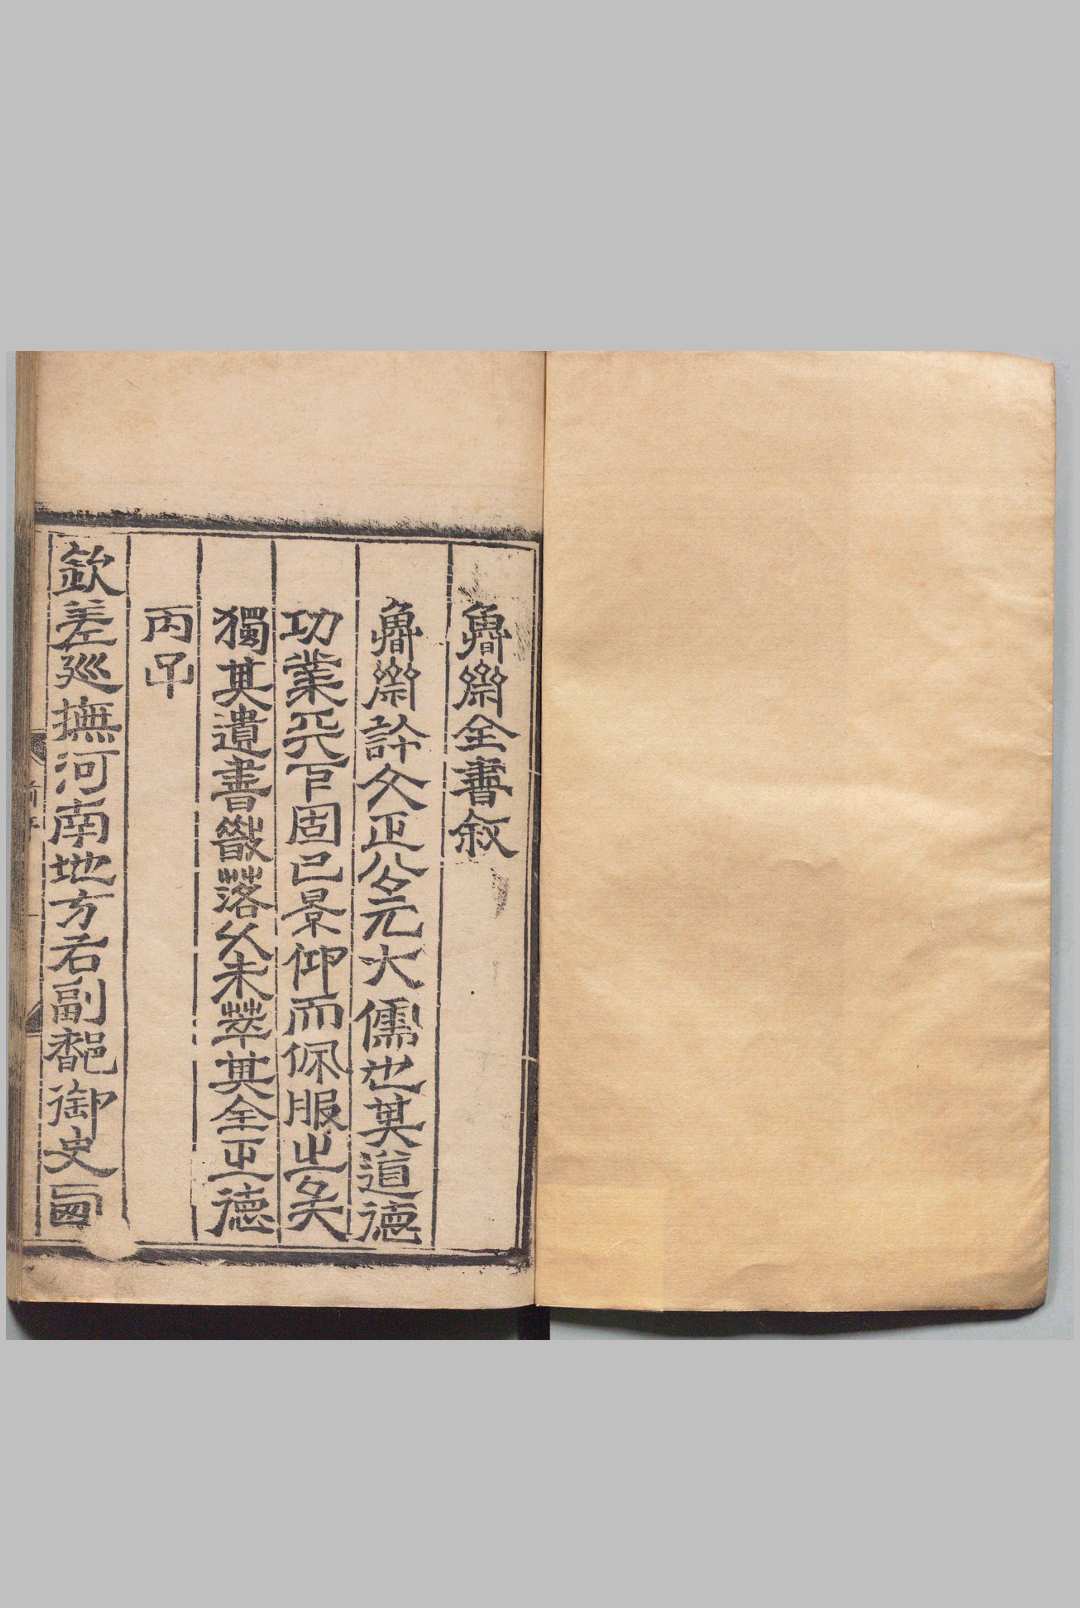 魯齋全書叙
魯齋許文正公元大儒也其道德
功業天下固已景仰而佩服之矣
獨其遺書散落久未萃其全正德
丙子
欽差巡撫河南地方右副都御史